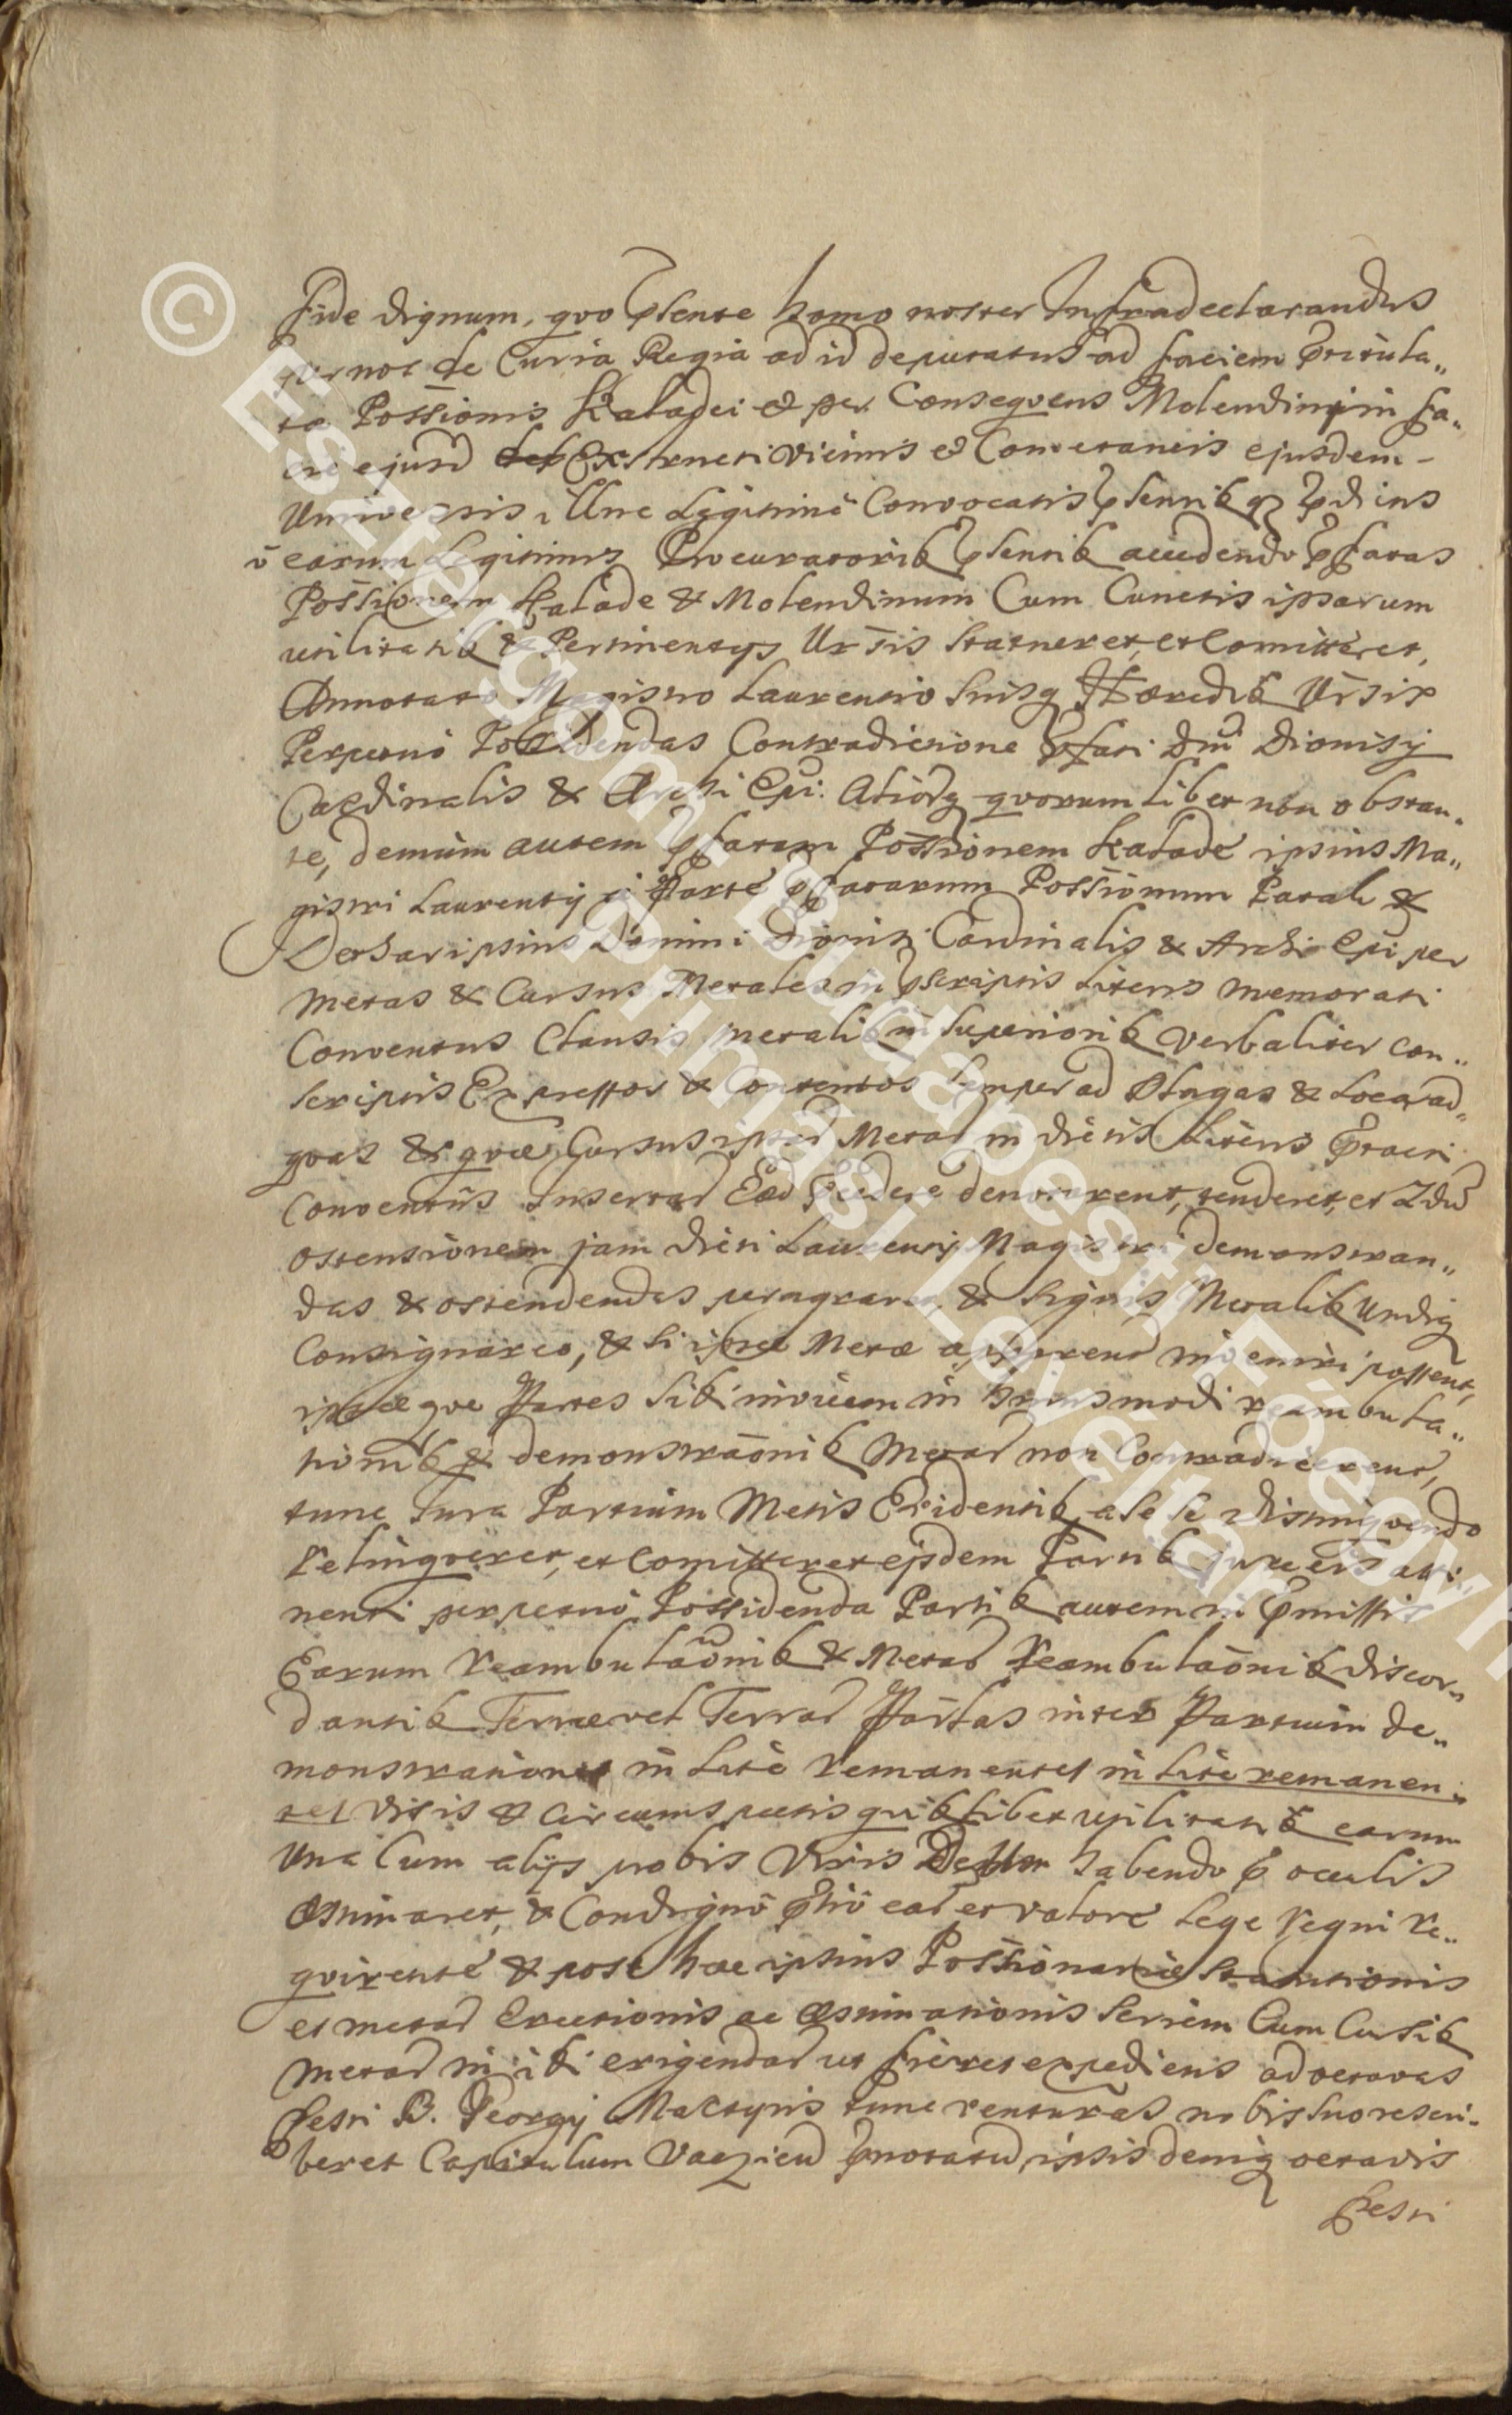 fide dignum, quo pñsente homo noster Infradeclarandus
per nos de Curia Regia ad id deputatus ad faciem prætitula„
tæ Possionis Kaladei et per Consequens Molendini in fa„
cie ejusd Exstructi vicinis et Cometaneis ejusdem –
Universis illuc Legitimè Convocatis pñsentib q
earum Legitimis Procuratorib pñsentib accedendo pfatas
Possionem Kalade & Molendinum Cum Cunctis ipsarum
utilitatib & Pertinentijs Statueret, et Comitteret,
Annotato Magistro Laurentio Suisq Hæredib
Perpetuò Possidendas Contradictione pfati Dni Dionisij
Cardinalis & Archi Epi: Aliorq quorumlibet non obstan„
te, demùm autem pfatam Possionem Kalade ipsius Ma„
gistri Laurentij à Parte pfatarum Possionum Patah &
Dersar ipsius Domini Dionisi Cardinalis & Archi Epi per
metas & Cursus Metales in pscriptis Literis memorati
Conventus Clausis metalib in Superiorib verbaliter con„
scriptis Expressos & Contentos Semper ad Plagas & Loca, ad„
quas & quæ Cursus ipsar Metar in dictis Literis
Conventûs Insertar denotarent, tenderet, et
ostensionem jam dicti Laurentij Magistri demonstran„
das & ostendendas peragraret, & Signis Metalib Undiq
Consignaret, & si ipsæ Metæ apparent inveniri possent,
ipsæque Partes Sibi invicem in hujusmodi reambula„
tionib & demonstraõnib Metar non Contradicerent,
tunc Jura Partium Metis Evidentib a se se distinguendo
Relinqveret, et Comitteret ejsdem Partib jure eis atti„
nenti perpetuò Possidenda Partib autem in pmissis
Earum Reambulaõnib & Metar Reambulaõnib discor„
dantib Terræ vel Terrar Partas inter Partium de„
monstrationes in Lite Remanentes in Lite remanen„
tes visis & circumspectis quibuslibet utilitatib earum
Una Cum alijs probis Viris habendo p oculis
Æstimaret, & Condignô ptiô eas et valore Lege Regni Re„
quirente & post hæc ipsius Possionariæ Statutionis
et metar Erectionis ac Æstimationis Seriem Cum Cursib
metar in ibi erigendar ut fieret expediens ad octavas
Festi B. Georgij Martyris tunc venturas nobis suo rescri„
beret Capitulum Vacziens pnotatu, ipsis deniq octavis
Festi
© Esztergom-Budapesti Főegyh
Prímási Levéltár